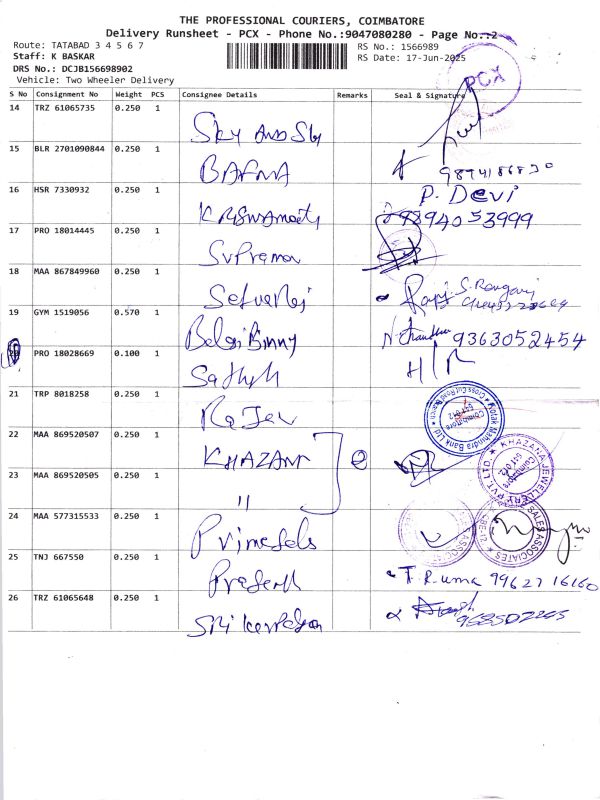 THE PROFESSIONAL COURIERS, COIMBATORE
Delivery Runsheet - PCX - Phone No.:9047080280 - Page No.:2
Route: TATABAD 3 4 5 6 7
RS No.: 1566989
Staff: K BASKAR
RS Date: 17-Jun-2025
DRS No.: DCJB156698902
Vehicle: Two Wheeler Delivery
PCX
S No Consignment No Weight PCS Consignee Details Remarks Seal & Signature
14 TRZ 61065735 0.250 1 Sky And Sky
15 BLR 2701090844 0.250 1 BAFNA
16 HSR 7330932 0.250 1 P. DEVI
9894053999
17 PRO 18014445 0.250 1 Supreman
18 MAA 867849960 0.250 1 S. Rangaraj
19 GYM 1519056 0.570 1 Balaji Binny 9363052454
20 PRO 18028669 0.100 1 Sathish H/R
21 TRP 8018258 0.250 1 Rajev
Kotak Mahindra Bank Ltd
Cross Cut Road Branch
Coimbatore
641 012
22 MAA 869520507 0.250 1 KHAZANA
KHAZANA JEWELLERY PVT. LTD.
Coimbatore
641 012
23 MAA 869520505 0.250 1 "
24 MAA 577315533 0.250 1 Primesals
SALES ASSOCIATES
25 TNJ 667550 0.250 1 Prasanth T. R. uma 99627 16160
26 TRZ 61065648 0.250 1